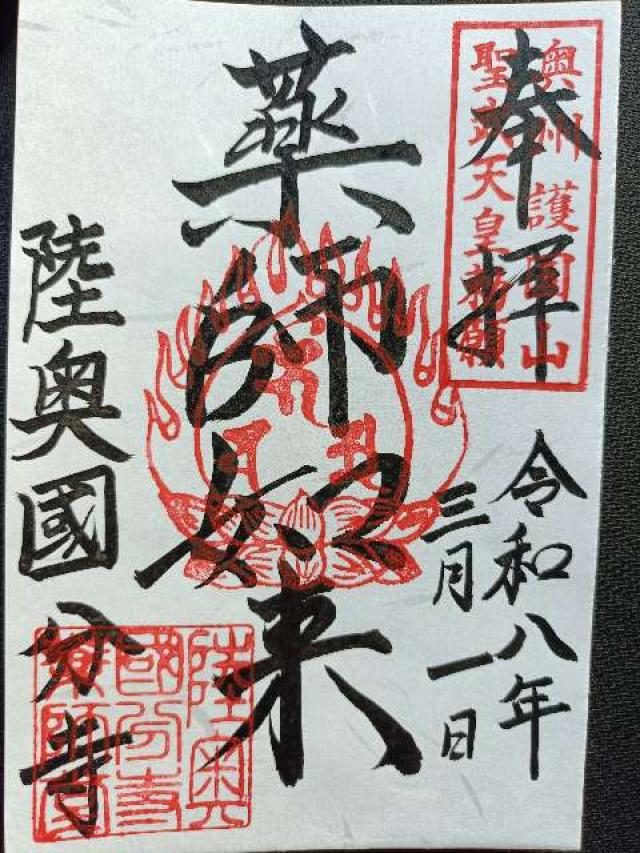 奉拝
奥州護国山
聖武天皇勅願
令和八年
三月一日
薬師如来
陸奥國分寺
陸奥
國分寺
薬師堂